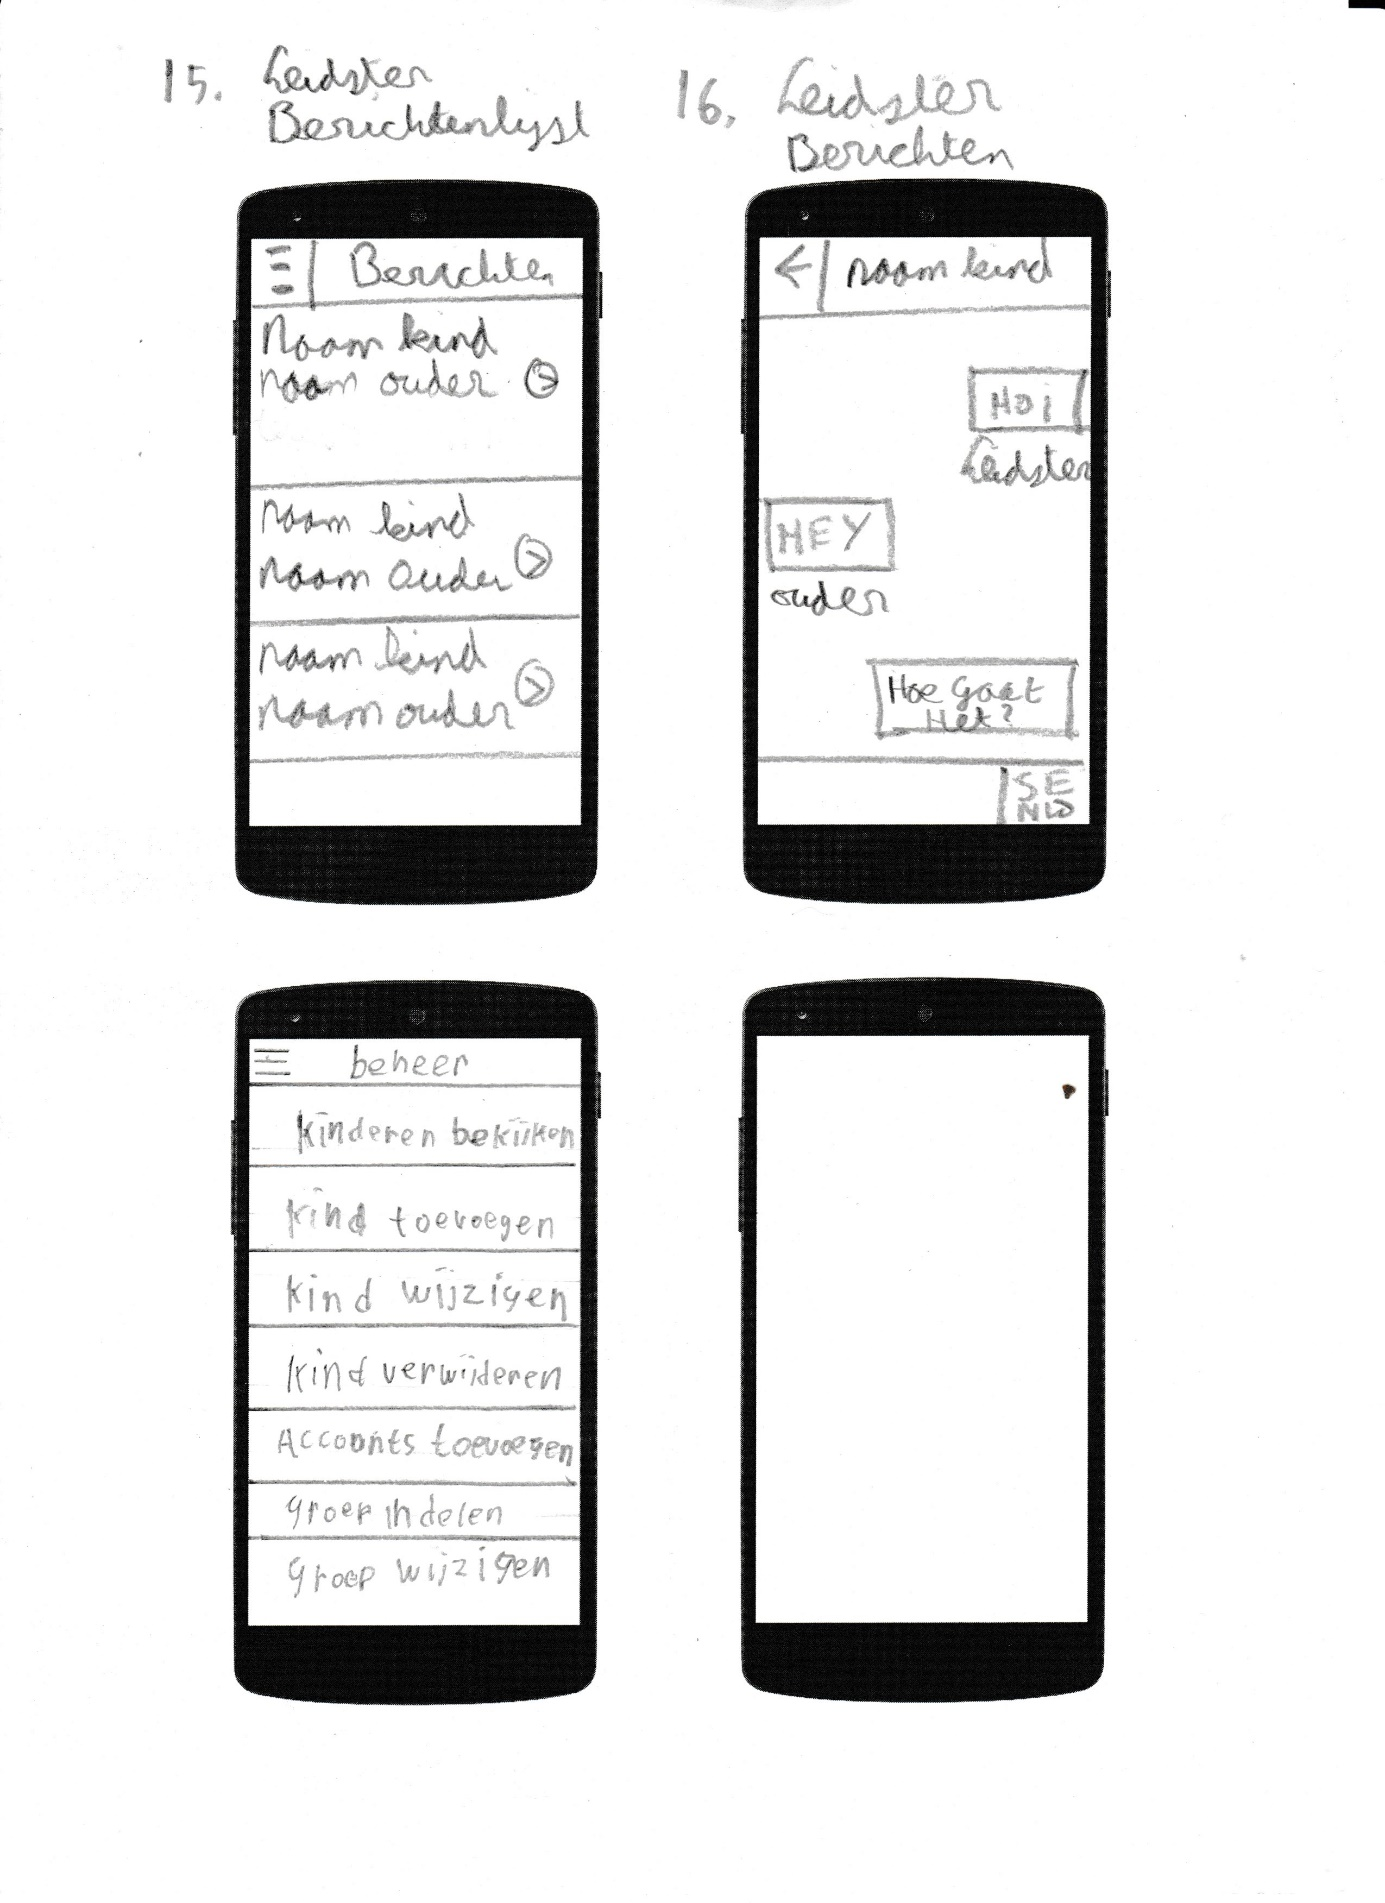 15. Leidster
Berichtenlijst
16. Leidster
Berichten
Berichten
Naam kind
naam ouder
naam kind
naam ouder
naam kind
naam ouder
naam kind
HOI
Leidster
HEY
ouder
Hoe Gaat
Het?
SE
ND
beheer
kinderen bekijken
kind toevoegen
kind wijzigen
kind verwijderen
Accounts toevoegen
groep indelen
groep wijzigen